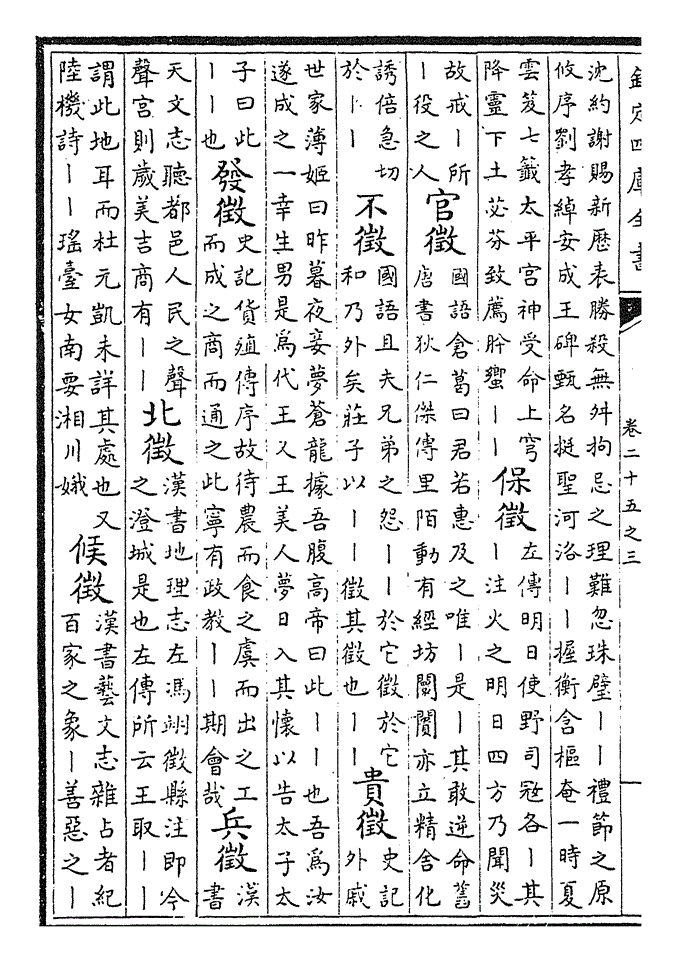 欽定四庫全書
卷二十五之三
沈約謝賜新厯表勝殺無舛拘忌之理難忽珠璧丨丨禮節之原
攸序劉孝綽安成王碑甄名挺聖河洛丨丨握衡含樞奄一時夏
雲笈七籤太平宮神受命上穹
降靈下土苾芬致薦肸蠁丨丨
保徵
左傳明日使野司冦各丨其
丨注火之明日四方乃聞災
故戒丨所
丨役之人
官徵
國語倉葛曰君若惠及之唯丨是丨其敢逆命舊
唐書狄仁傑傳里陌動有經坊闤闠亦立精舍化
誘倍急切
於丨丨
不徵
國語且夫兄弟之怨丨丨於它徵於它
和乃外矣莊子以丨丨徵其徵也丨丨
貴徵
史記
外戚
世家薄姬曰昨暮夜妾夢蒼龍據吾腹高帝曰此丨丨也吾爲汝
遂成之一幸生男是爲代王又王美人夢日入其懷以告太子太
子曰此
丨丨也
發徵
史記貨殖傳序故待農而食之虞而出之工
而成之商而通之此寧有政教丨丨期會哉
兵徵
漢
書
天文志聽都邑人民之聲
聲宮則歲美吉商有丨丨
北徵
漢書地理志左馮翊徵縣注即今
之澄城是也左傳所云王取丨丨
謂此地耳而杜元凱未詳其處也又
陸機詩丨丨瑤臺女南要湘川娥
候徵
漢書藝文志雜占者紀
百家之象丨善惡之丨